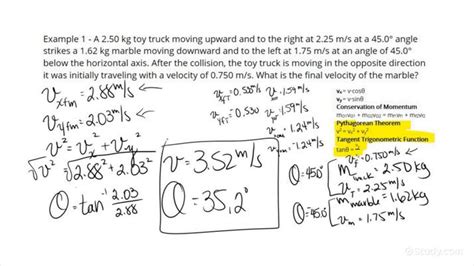 Example 1 - A 2.50 kg toy truck moving upward and to the right at 2.25 m/s at a 45.0° angle
strikes a 1.62 kg marble moving downward and to the left at 1.75 m/s at an angle of 45.0°
below the horizontal axis. After the collision, the toy truck is moving in the opposite direction
it was initially traveling with a velocity of 0.750 m/s. What is the final velocity of the marble?
v_xfm = 2.88 m/s
v_yfm = 2.03 m/s
v² = v_x² + v_y²
√v² = √2.88² + 2.03²
θ = tan⁻¹ 2.03/2.88
v = 3.52 m/s
θ = 35.2°
1.59 m/s
1.59 m/s
1.24 m/s
1.24 m/s
vₓ = v·cosθ
v_y = v·sinθ
Conservation of Momentum
Pythagorean Theorem
v² = vₓ² + v_y²
Tangent Trigonometric Function
v_f = 0.750 m/s
θ = 45.0°
m_truck = 2.50 kg
v_T = 2.25 m/s
m_marble = 1.62 kg
θ = 45.0°
v_m = 1.75 m/s
Study.com